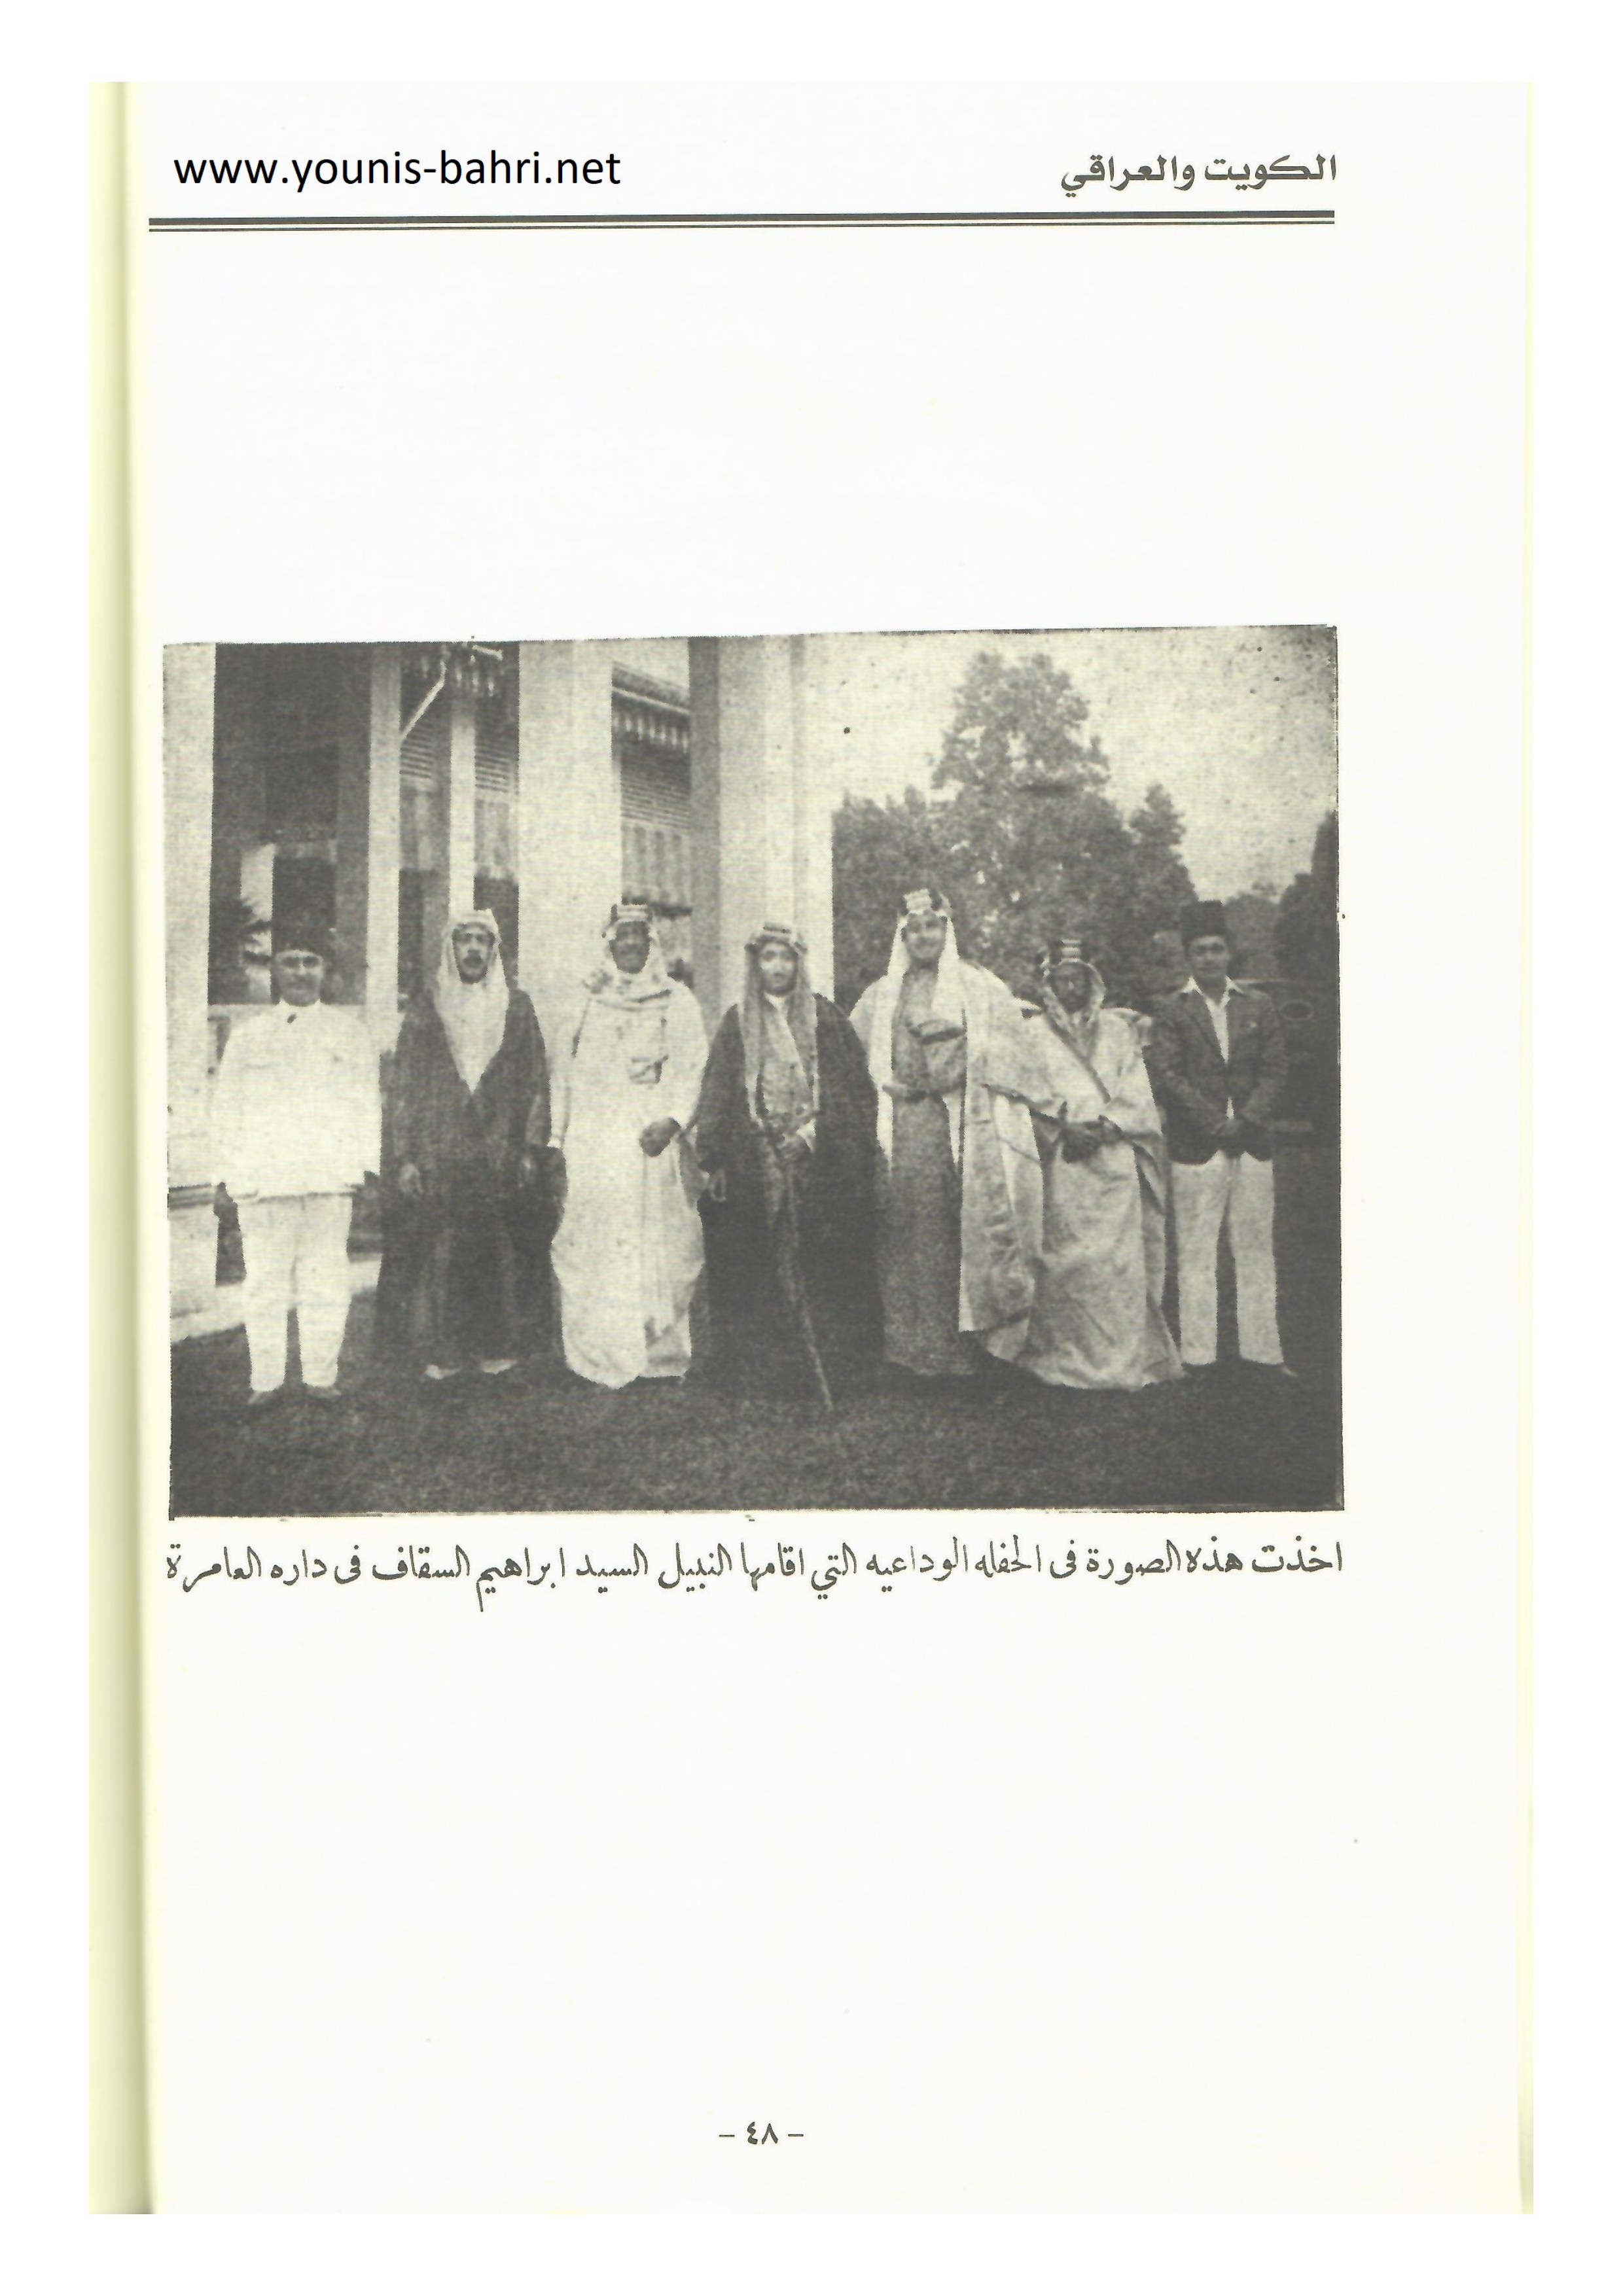 الكويت والعراقي
www.younis-bahri.net
اخذت هذه الصورة فى الحفله الوداعيه التي اقامها النبيل السيد ابراهيم السقاف فى داره العامرة
- ٤٨ -